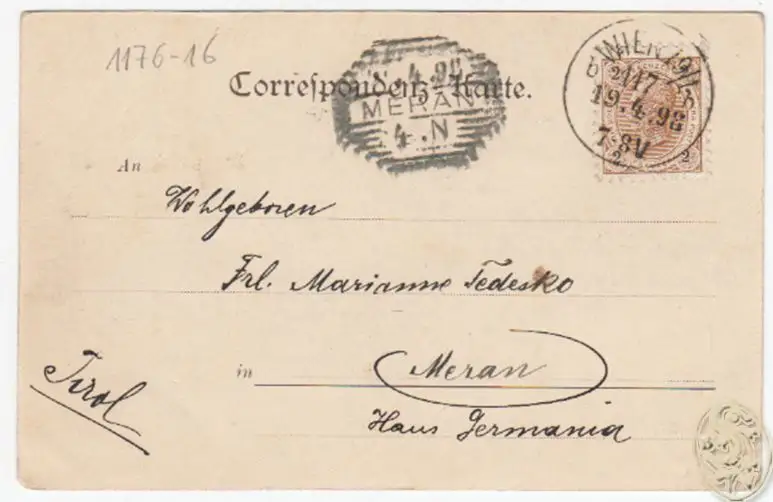 1176-16
Correspondenz-Karte.
.4.98
MERAN
4.N
WIEN
19.4.98
7-8V
2
2
An
Wohlgeboren
Frl. Marianne Tedesko
in Meran
Tirol
Haus Germania